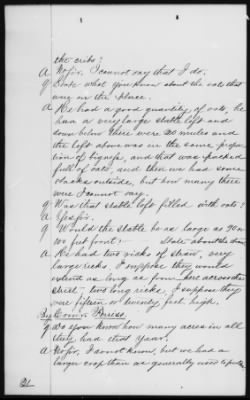 the cribs?
A No sir. I cannot say that I do.
Q State what you know about the oats that
was on the place.
A He had a good quantity of oats, he
had a very large stable loft and
down below there were 20 mules and
the loft above was in the same propor-
tion of bigness, and that was packed
full of oats, and then we had some
stacks outside, but how many there
were I cannot say.
Q Was that stable loft filled with oats?
A Yes sir.
Q Would the stable be as large as 90 x
100 feet front? State about the
A He had two ricks of straw, very
large ricks. I suppose they would
extend as long as from here across the
street, two long ricks, I suppose they
were fifteen or twenty feet high.
By Comr.
Q Do you know how many acres in all
they had that year.
A No sir, I do not know, but we had a
larger crop than we generally used to